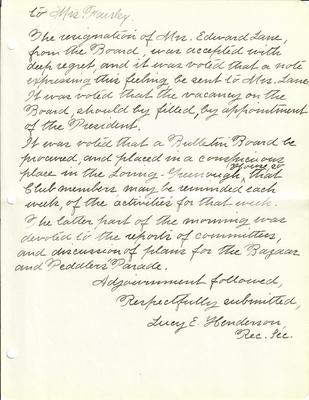 to Mrs. Fraisly.
The resignation of Mrs. Edward Lane,
from the Board, was accepted with
deep regret, and it was voted that a note
expressing this feeling be sent to Mrs. Lane.
It was voted that the vacancy on the
Board, should by filled, by appointment
of the President.
It was voted that a Bulletin Board be
procured, and placed in a conspicuous
place in the Loring-Greenough House, so that
Club members may be reminded each
week, of the activities for that week.
The latter part of the morning was
devoted to the reports of committees,
and discussion of plans for the Bazaar
and Peddlers Parade.
Adjournment followed,
Respectfully submitted,
Lucy E. Henderson,
Rec. Sec.